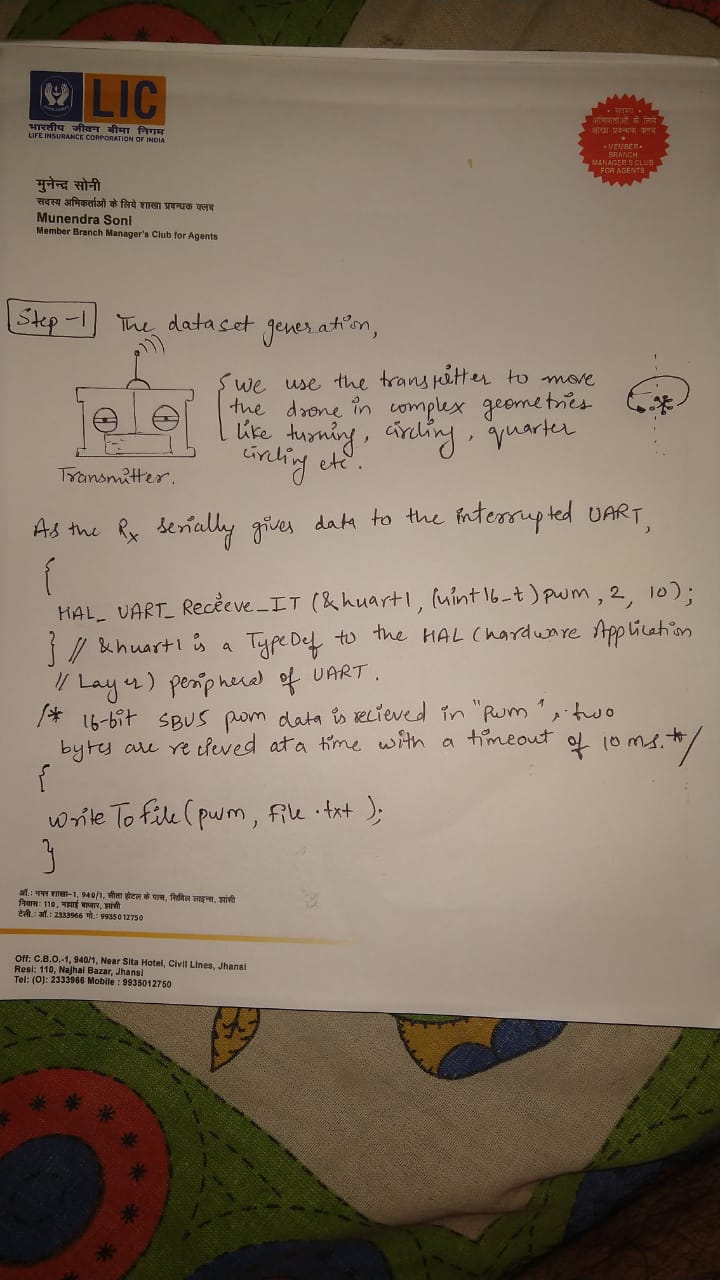 LIC
भारतीय जीवन बीमा निगम
LIFE INSURANCE CORPORATION OF INDIA
सदस्य
अभिकर्ताओं के लिये
शाखा प्रबन्धक क्लब
MEMBER
BRANCH
MANAGER'S CLUB
FOR AGENTS
मुनेन्द्र सोनी
सदस्य अभिकर्ताओं के लिये शाखा प्रबन्धक क्लब
Munendra Soni
Member Branch Manager's Club for Agents
Step-1 The dataset generation,
we use the transmitter to move
the drone in complex geometries
like turning, circling, quarter
circling etc.
Transmitter.
As the Rx serially gives data to the interrupted UART,
{
HAL_UART_Receeve_IT (&huart1, (uint16_t) pwm, 2, 10);
} // &huart1 is a TypeDef to the HAL (hardware Application
// Layer) peripheral of UART.
/* 16-bit SBUS pwm data is recieved in "Pwm", two
bytes are recieved at a time with a timeout of 10 ms. */
{
write To file (pwm, file.txt);
}
ऑ.: नगर शाखा-1, 940/1, सीता होटल के पास, सिविल लाइन्स, झांसी
निवास: 110, नझाई बाजार, झांसी
टेली.: ऑ.: 2333966 मो.: 9935012750
Off: C.B.O.-1, 940/1, Near Sita Hotel, Civil Lines, Jhansi
Resi: 110, Najhai Bazar, Jhansi
Tel: (O): 2333966 Mobile : 9935012750